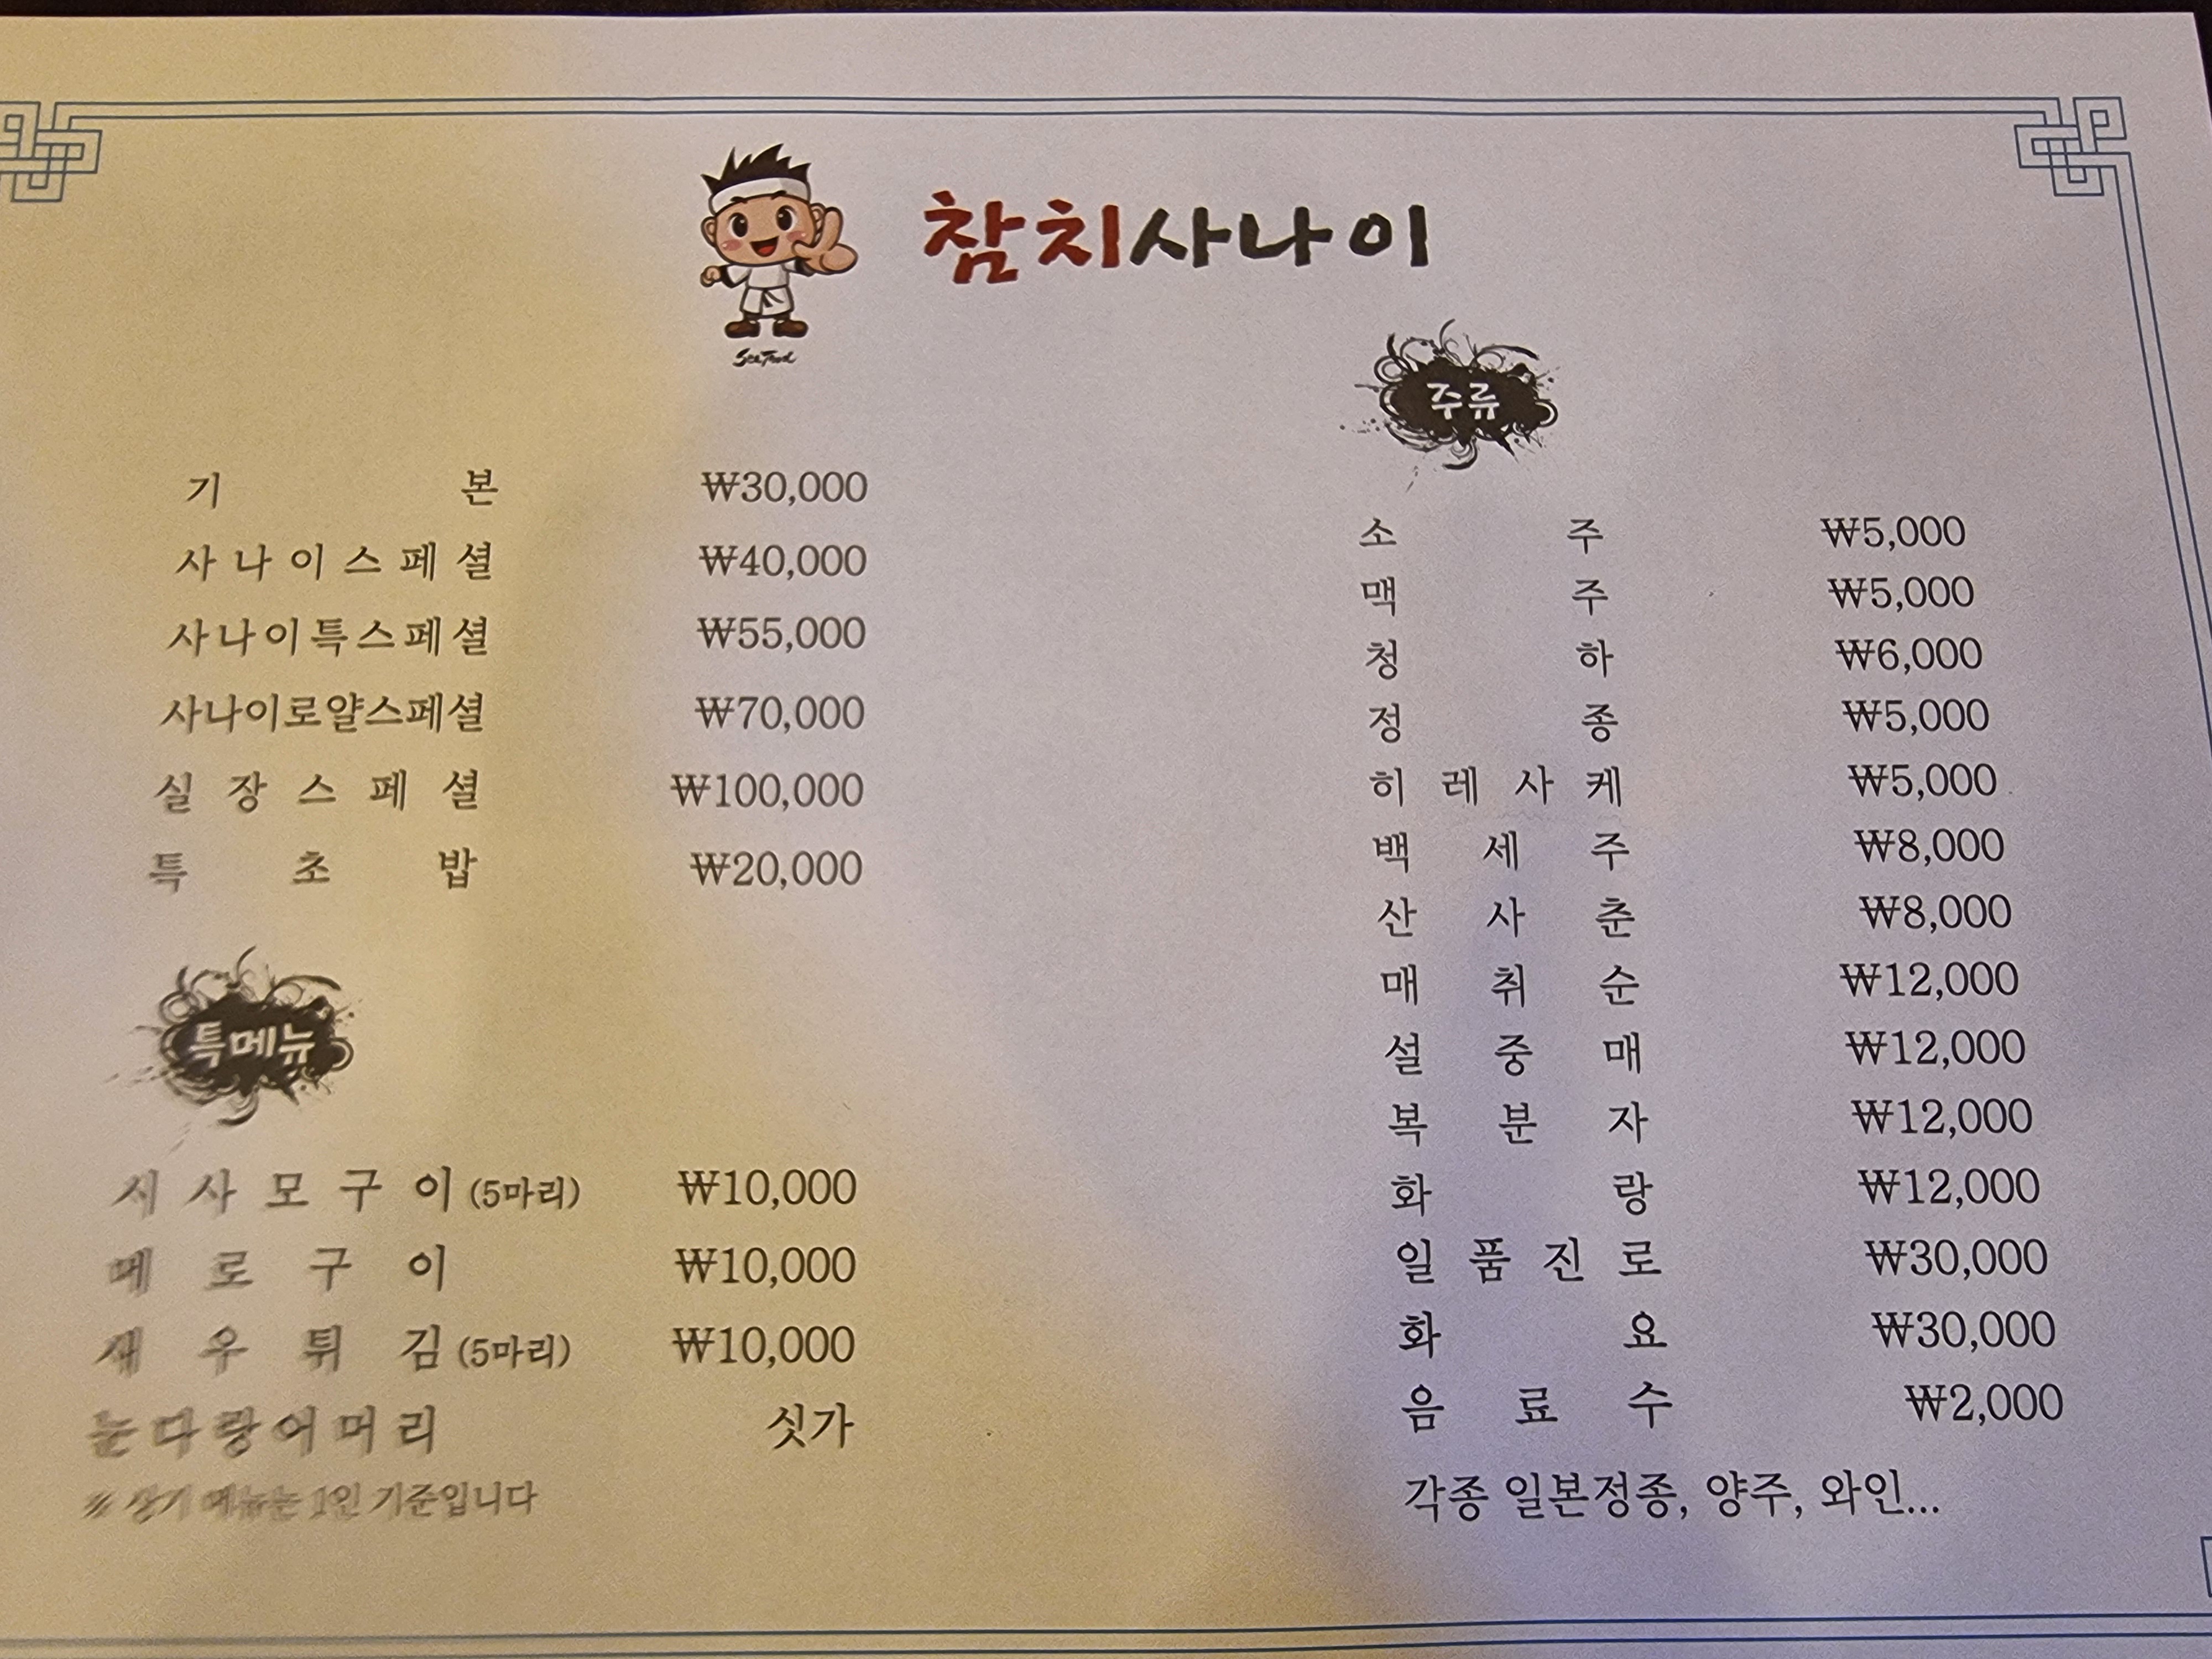 참치사나이
Sea Food
기본 ₩30,000
사나이스페셜 ₩40,000
사나이특스페셜 ₩55,000
사나이로얄스페셜 ₩70,000
실장스페셜 ₩100,000
특초밥 ₩20,000
특메뉴
시사모구이(5마리) ₩10,000
메로구이 ₩10,000
새우튀김(5마리) ₩10,000
눈다랑어머리 싯가
※ 상기 메뉴는 1인 기준입니다
주류
소주 ₩5,000
맥주 ₩5,000
청하 ₩6,000
정종 ₩5,000
히레사케 ₩5,000
백세주 ₩8,000
산사춘 ₩8,000
매취순 ₩12,000
설중매 ₩12,000
복분자 ₩12,000
화랑 ₩12,000
일품진로 ₩30,000
화요 ₩30,000
음료수 ₩2,000
각종 일본정종, 양주, 와인...